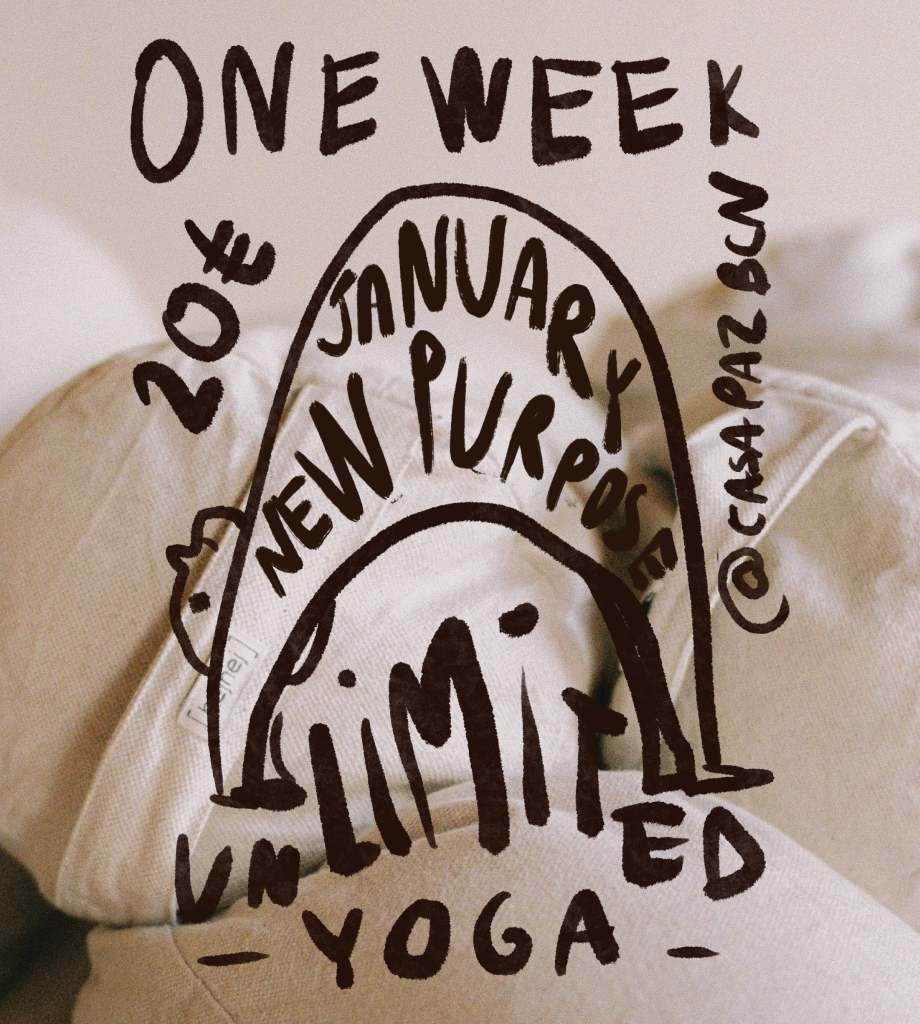 ONE WEEK
20€
JANUARY
NEW PURPOSE
@CASAPAZBCN
UNLIMITED
- YOGA -
[hejhej]